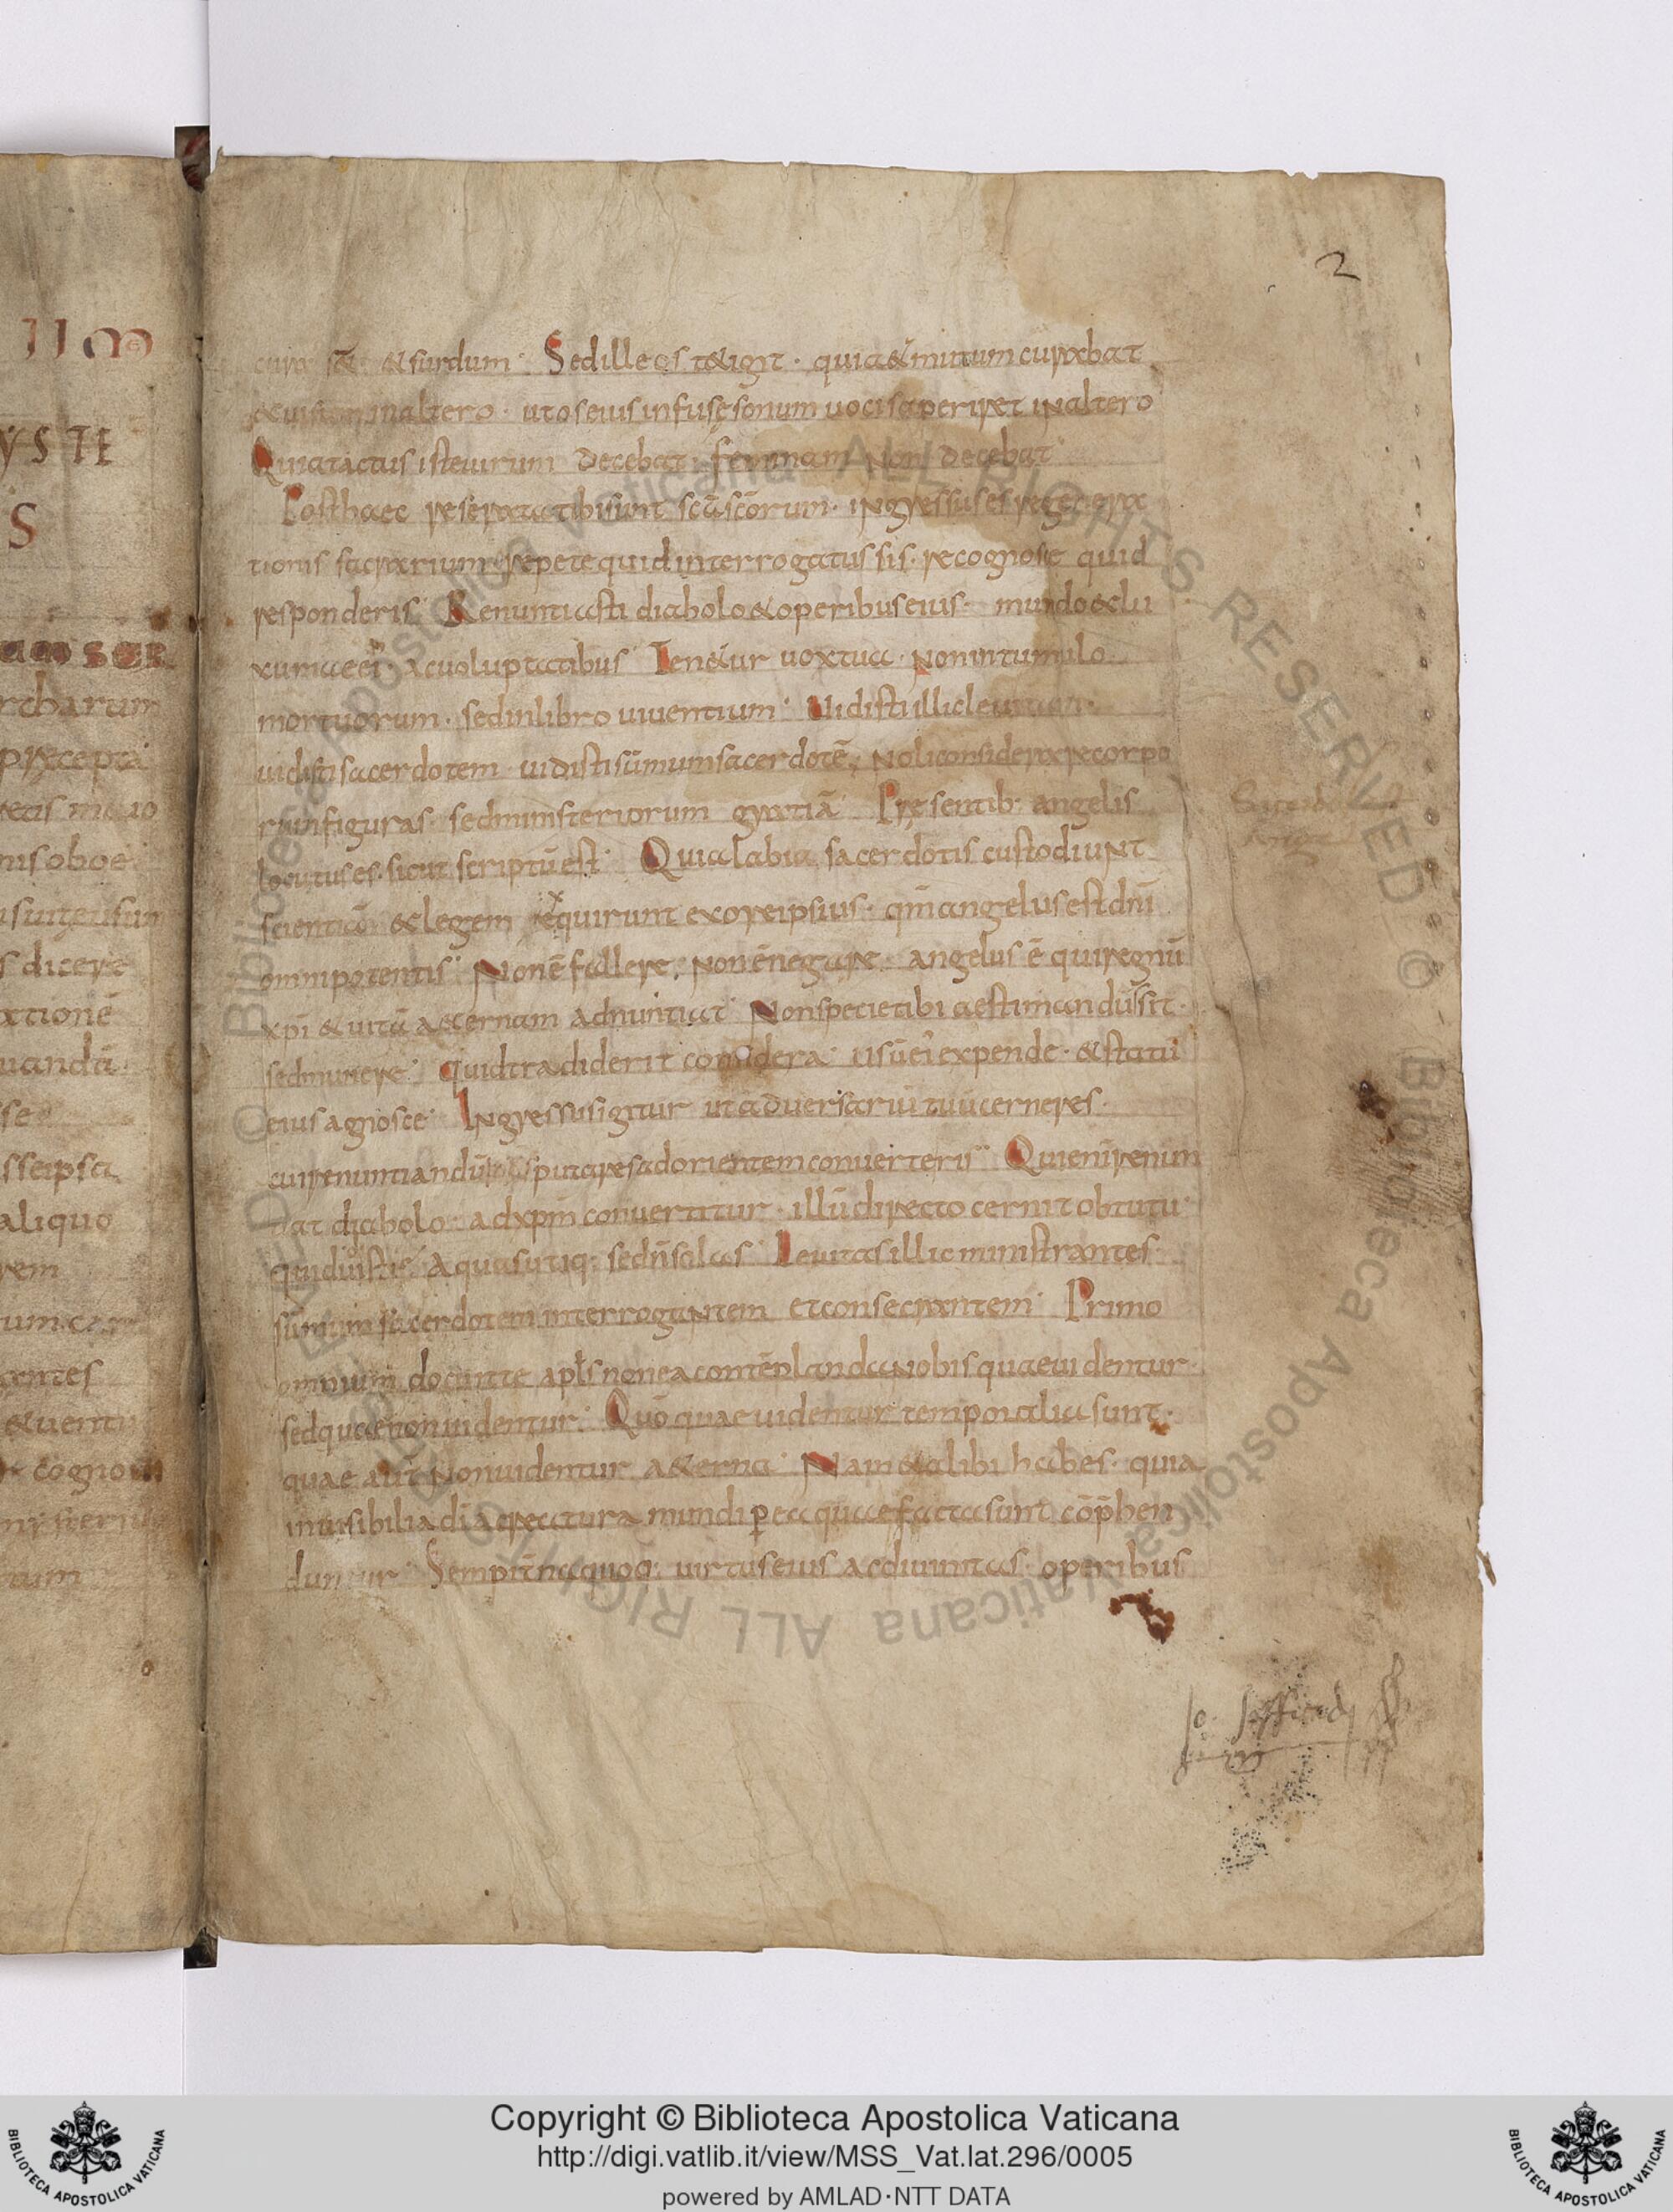 2
curaret & surdum· Sed ille os t&igit· quia & mutum curabat
& uirum in altero· ut os eius infusę sonum uocis aperiret in altero
Quia tactus iste uirum decebat· feminam non decebat·
Post haec reserata tibi sunt scā scōrum· ingressus es regenera
tionis sacrarium· repete quid interrogatus sis· recognosce quid
responderis· Renuntiasti diabolo & operibus eius· mundo & lu
xuriae ei· ac uoluptatibus· Ten&ur uox tua· Non in tumulo
mortuorum· sed in libro uiuentium· Uidisti illic leuitam·
uidisti sacerdotem uidisti sūmum sacerdotē· Noli considerare corpo
rum figuras· sed ministeriorum gratiā· Pręsentib: angelis
locutus es· sicut scriptū est· Quia labia sacerdotis custodiunt
scientiā· & legem exquirunt ex ore ipsius· qm̄ angelus est dn̄i
omnipotentis· Non ē fallere· Non ē negare· angelus ē qui regnū
xpī & uitā aeternam adnuntiat· Non specie tibi aestimandus sit·
sed munere· Quid tradiderit considera· usū ei expende· & statū
eius agnosce· Ingressus igitur ut aduersariū tuū cerneres·
cui renuntiandū putares ad orientem conuerteris· Qui enī renun
tiat diabolo· ad xpm̄ conuertitur· illū directo cernit obtutu·
quid uidisti· Aquas utiq: sed n̄ solas· Leuitas illic ministrantes·
sūmum sacerdotem interrogantem et consecrantem· Primo
omnium docuit te apl̄s non ea contēplanda nobis quae uidentur·
sed quae non uidentur· Qūo quae uidentur temporalia sunt·
quae aut̄ Non uidentur a&erna· Nam & alibi habes· quia
inuisibilia dī a creatura mundi p ea quae facta sunt cōp̄hen
duntur· Sempit̄na quoq: uirtus eius ac diuinitas· operibus
Copyright © Biblioteca Apostolica Vaticana
http://digi.vatlib.it/view/MSS_Vat.lat.296/0005
powered by AMLAD·NTT DATA
BIBLIOTECA APOSTOLICA VATICANA
BIBLIOTECA APOSTOLICA VATICANA